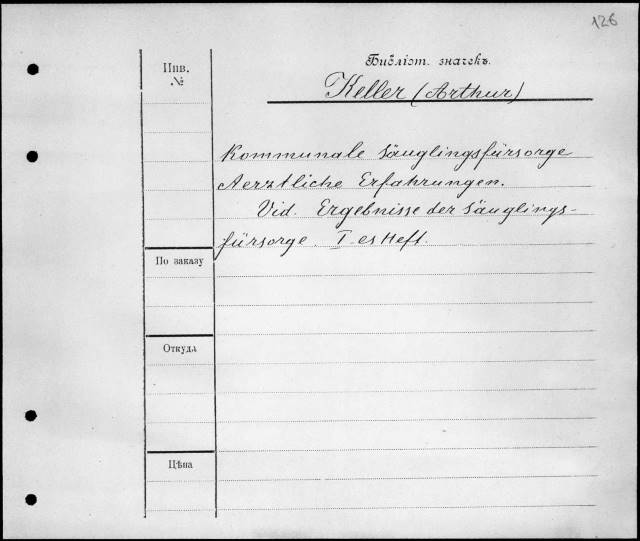 126
Инв.
№
Библіот. значекъ.
Keller (Arthur)
Kommunale Säuglingsfürsorge
Aerztliche Erfahrungen.
Vid. Ergebnisse der Säuglings-
fürsorge. I-es Heft.
По заказу
Откуда
Цѣна